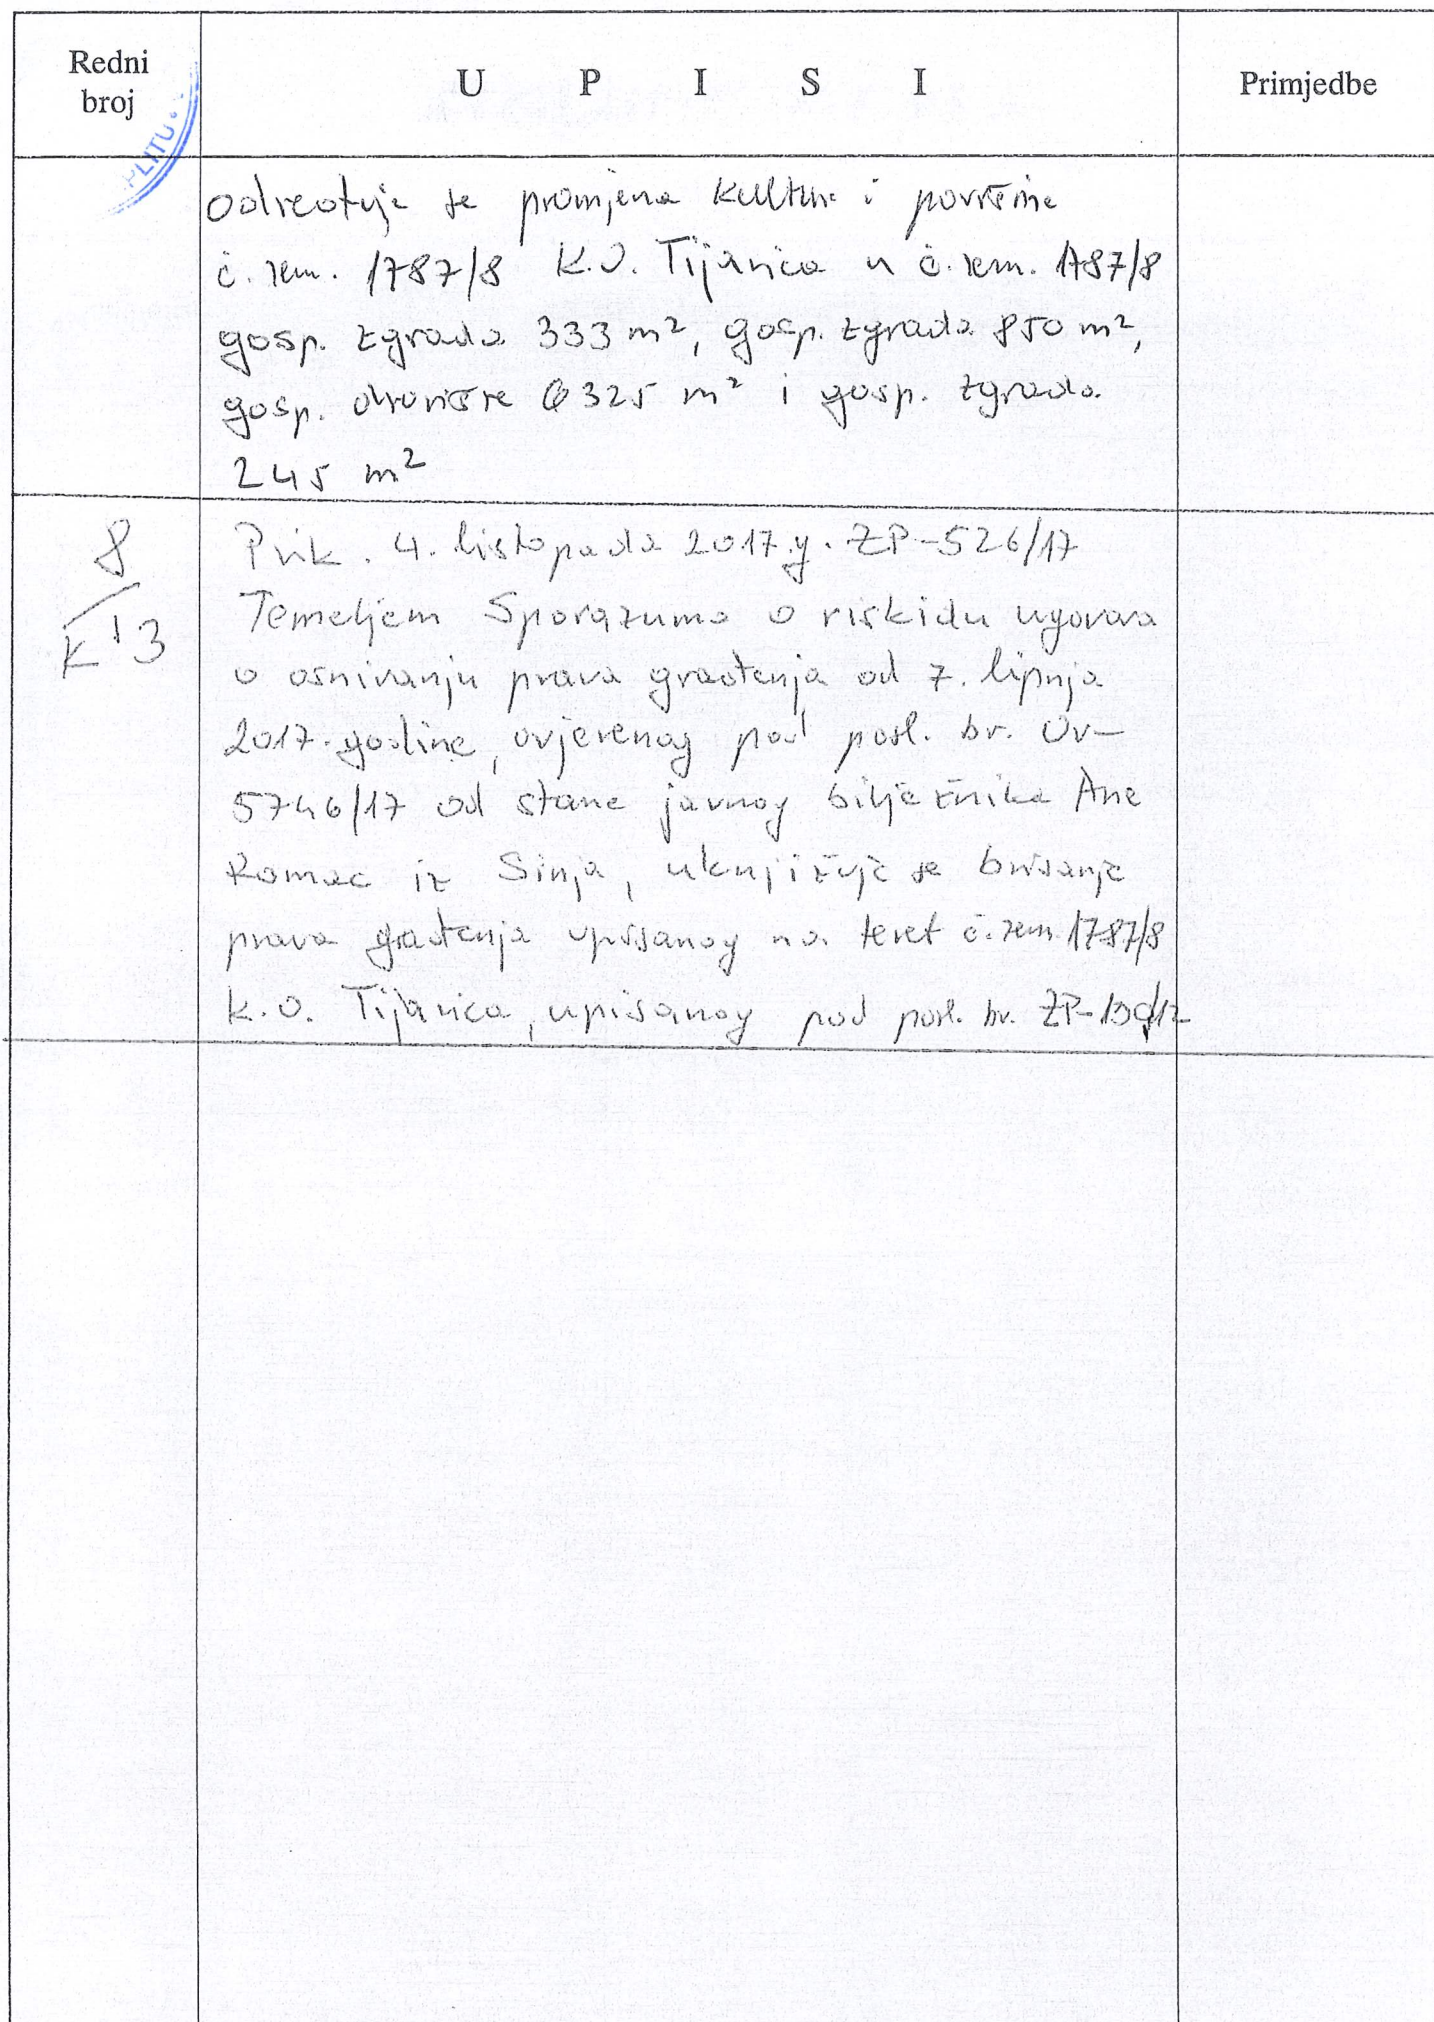 Redni
broj
U P I S I
Primjedbe
PLITU
Određuje se promjena kulture i površine
č. zem. 1787/8 K.O. Tijarica u č. zem. 1787/8
gosp. zgrada 333 m², gosp. zgrada 850 m²,
gosp. dvorište 6325 m² i gosp. zgrada
245 m²
8
K 13
Prik. 4. listopada 2017.g. ZP-526/17
Temeljem Sporazuma o raskidu ugovora
o osnivanju prava građenja od 7. lipnja
2017. godine, ovjerenog pod posl. br. Ov-
5746/17 od strane javnog bilježnika Ane
Romac iz Sinja, uknjižuje se brisanje
prava građenja upisanog na teret č. zem. 1787/8
K.O. Tijarica, upisanog pod posl. br.